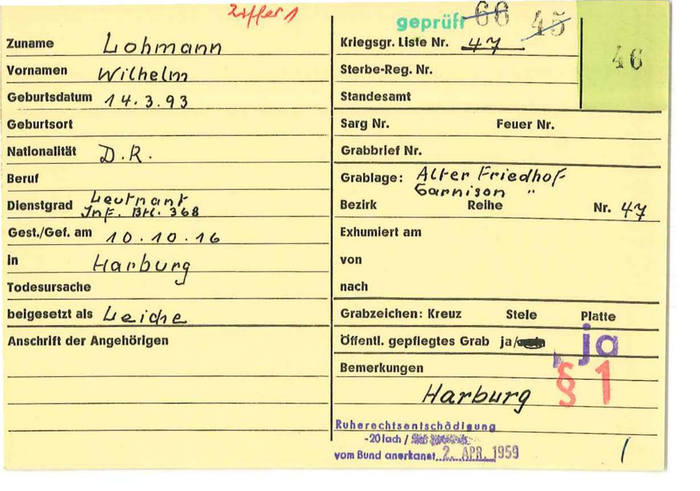 Ziffer 1
geprüft 66 45
46
Zuname Lohmann
Vornamen Wilhelm
Geburtsdatum 14.3.93
Geburtsort
Nationalität D.R.
Beruf
Dienstgrad Leutnant
Inf. Btl. 368
Gest./Gef. am 10.10.16
in Harburg
Todesursache
beigesetzt als Leiche
Anschrift der Angehörigen
Kriegsgr. Liste Nr. 47
Sterbe-Reg. Nr.
Standesamt
Sarg Nr. Feuer Nr.
Grabbrief Nr.
Grablage: Alter Friedhof
Garnison "
Bezirk Reihe Nr. 47
Exhumiert am
von
nach
Grabzeichen: Kreuz Stele Platte
Öffentl. gepflegtes Grab ja/ ja
Bemerkungen § 1
Harburg
Ruherechtsentschädigung
-20fach /
vom Bund anerkannt 2. APR. 1959